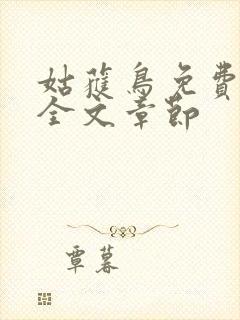 姑獲鳥免費
全文章節
覃暮